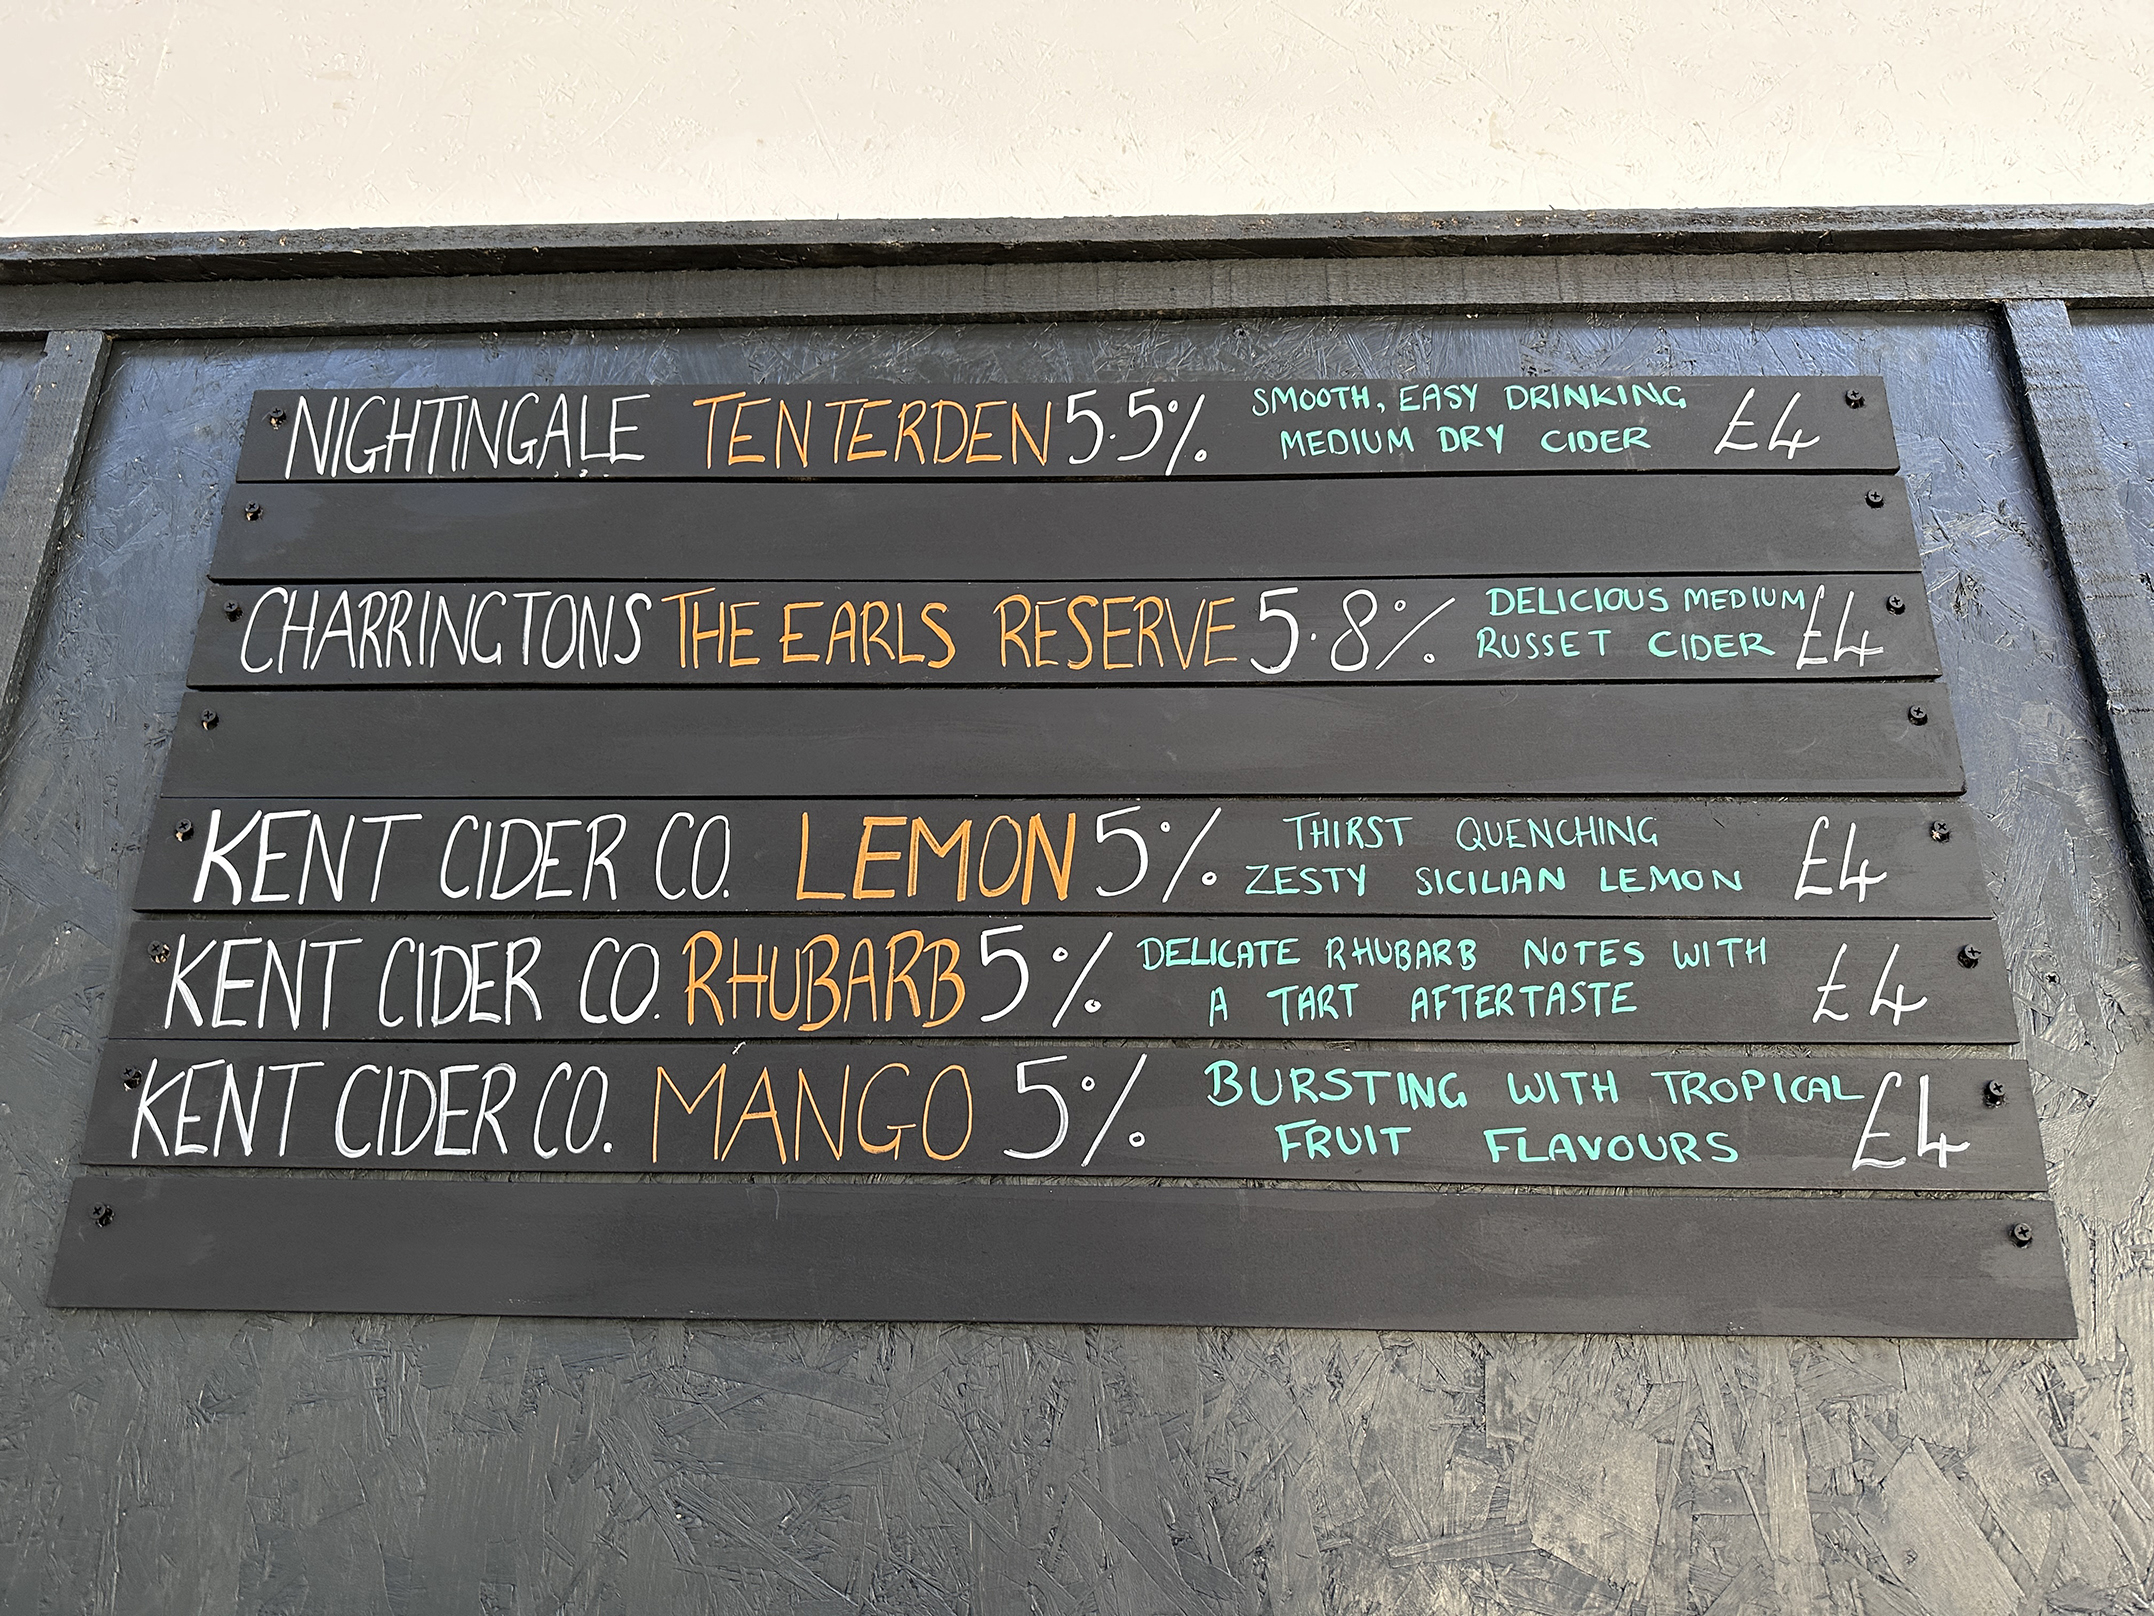 NIGHTINGALE TENTERDEN 5.5% SMOOTH, EASY DRINKING
MEDIUM DRY CIDER £4
CHARRINGTONS THE EARLS RESERVE 5.8% DELICIOUS MEDIUM
RUSSET CIDER £4
KENT CIDER CO. LEMON 5% THIRST QUENCHING
ZESTY SICILIAN LEMON £4
KENT CIDER CO. RHUBARB 5% DELICATE RHUBARB NOTES WITH
A TART AFTERTASTE £4
KENT CIDER CO. MANGO 5% BURSTING WITH TROPICAL
FRUIT FLAVOURS £4